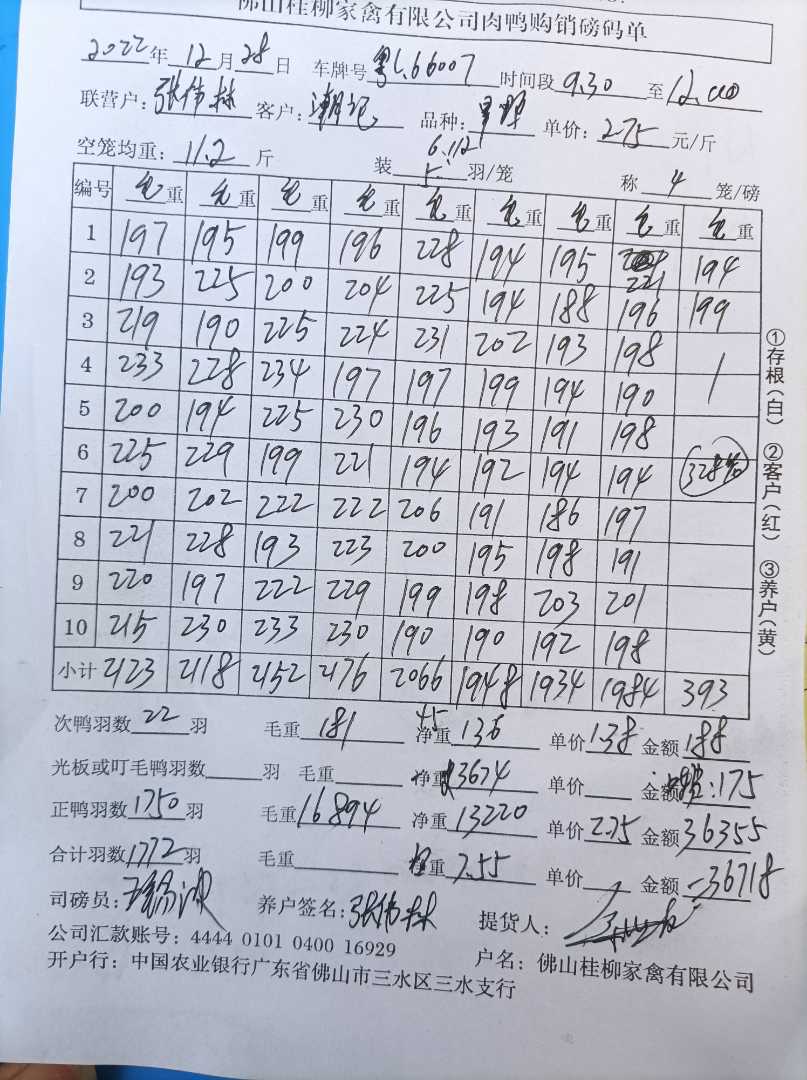 佛山桂柳家禽有限公司肉鸭购销磅码单
2022年12月28日 车牌号粤L66007 时间段9.30至12.00
联营户:张伟林 客户:潮记 品种: 单价:275元/斤
6.112
空笼均重:11.2斤 装5羽/笼 称4笼/磅
编号 毛重 毛重 毛重 毛重 毛重 毛重 毛重 毛重 毛重
1 197 195 199 196 228 194 195 221 194
2 193 225 200 204 225 194 188 196 199
3 219 190 225 224 231 202 193 198
4 233 228 234 197 197 199 194 190
5 200 194 225 230 196 193 191 198
6 225 229 199 221 194 192 194 194
7 200 202 222 222 206 191 186 197
8 221 228 193 223 200 195 198 191
9 220 197 222 229 199 198 203 201
10 215 230 233 230 190 190 192 198
小计 2123 2118 2152 2176 2066 1948 1934 1984 393
次鸭羽数22羽 毛重181 45 净重136 单价1.38 金额188
光板或叮毛鸭羽数 羽 毛重 净重3674 单价 金额175
正鸭羽数1750羽 毛重16894 净重13220 单价2.75 金额36355
合计羽数1772羽 毛重 净重7.55 单价 金额36718
司磅员: 养户签名:张伟林 提货人:
公司汇款账号:4444 0101 0400 16929
户名:佛山桂柳家禽有限公司
开户行:中国农业银行广东省佛山市三水区三水支行
①存根(白) ②客户(红) ③养户(黄)